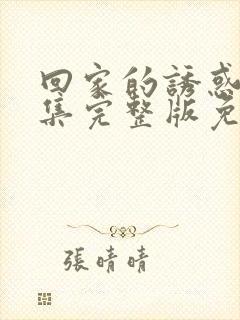 回家的誘惑
集完整版免
張晴晴